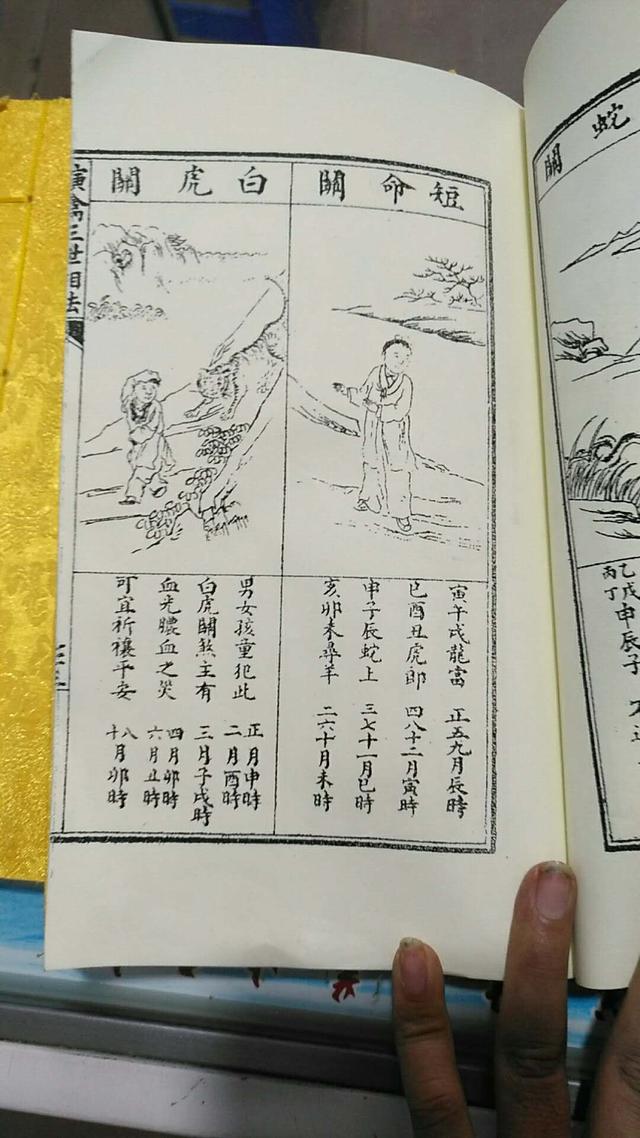 短命關
寅午戌龍當 正五九月辰時
巳酉丑虎鄉 四八十二月寅時
申子辰蛇上 三七十一月巳時
亥卯未尋羊 二六十月未時
白虎關
男女孩童犯此
白虎關煞主有
血光膿血之災
可宜祈禳平安
正月申時
二月酉時
三月子戌時
四月卯時
六月丑時
八月卯時
十
演禽三世相法
蛇關
乙戊申辰子
丙丁